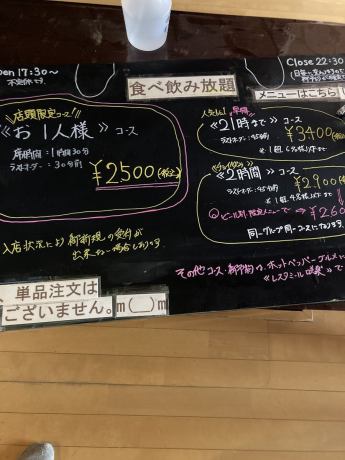 open 17:30〜
不定休です
Close 22:30
食べ飲み放題
メニューはこちら
店頭限定コース!!
《お1人様》コース
席時間:1時間30分
ラストオーダー:30分前
¥2500(税込)
人気No.1
《21時まで》コース
ラストオーダー:45分前
¥3400
《2時間》コース
ラストオーダー:45分前
¥2,900(税込)
¥260
同一グループ同一コースになります。
入店状況により新規様の受付が
出来ない場合もあります。
その他コース・新予約は、ホットペッパーグルメ
単品注文は
ございません。m(__)m